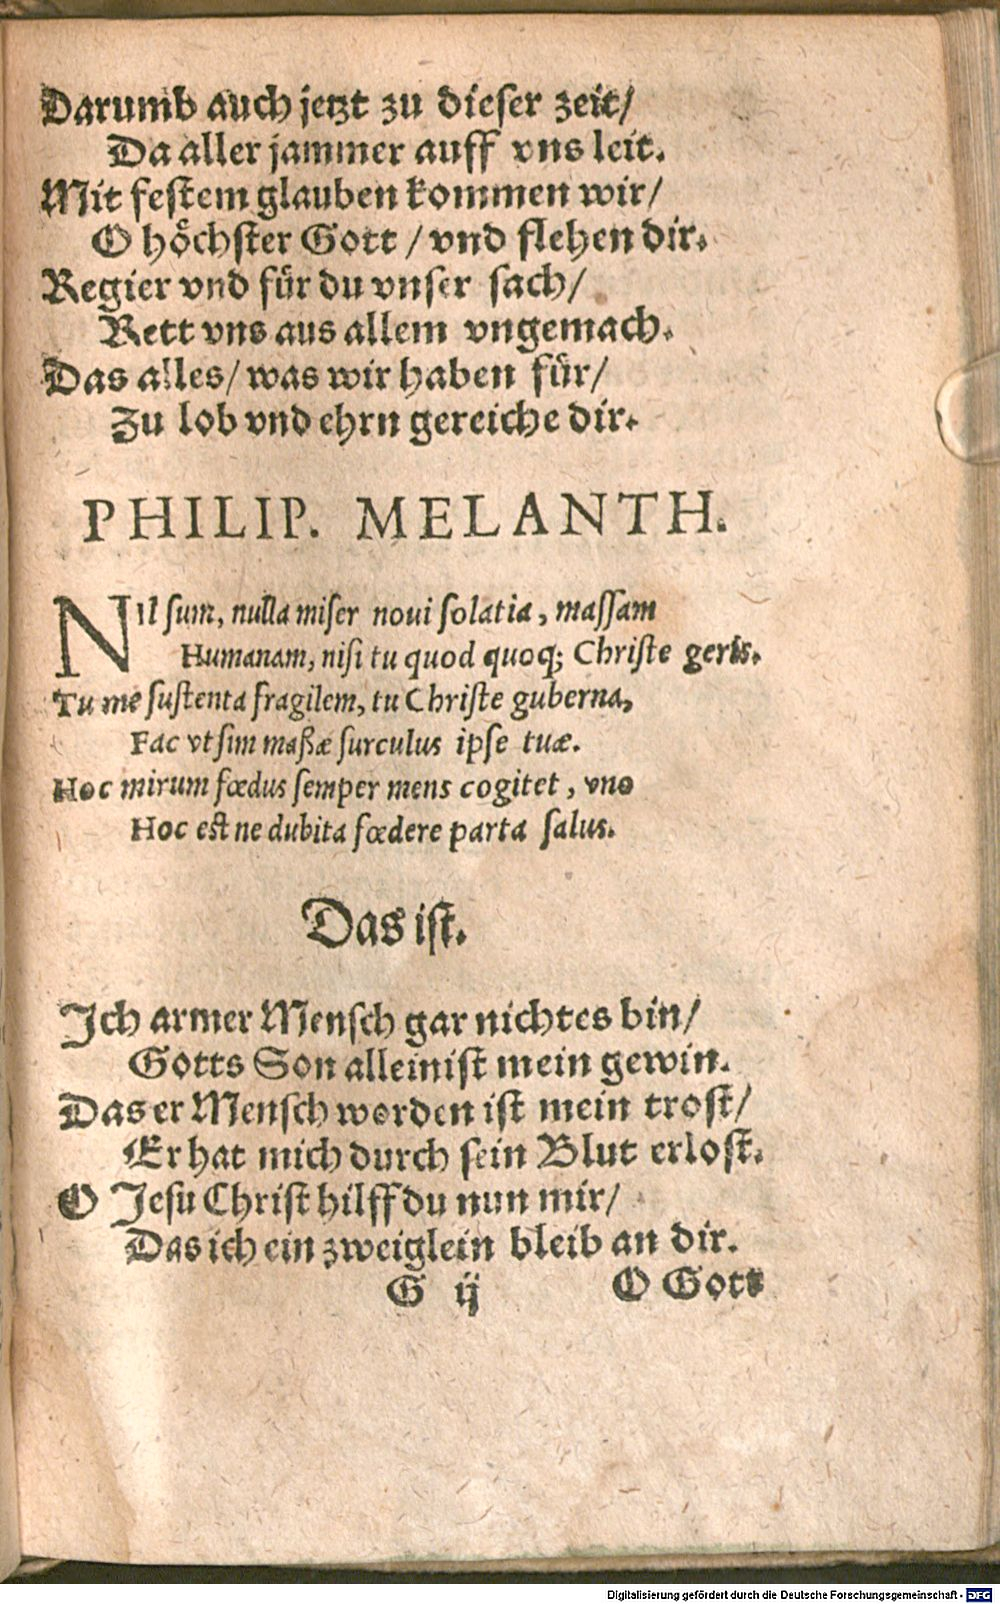 Darumb auch jetzt zu dieser zeit/
Da aller jammer auff vns leit.
Mit festem glauben kommen wir/
O höchster Gott / vnd flehen dir.
Regier vnd für du vnser sach/
Rett vns aus allem vngemach.
Das alles/ was wir haben für/
Zu lob vnd ehrn gereiche dir.
PHILIP. MELANTH.
NIl ſum, nulla miſer noui ſolatia, maſſam
Humanam, niſi tu quod quoq; Chriſte geris.
Tu me ſuſtenta fragilem, tu Chriſte guberna,
Fac vt ſim maßæ ſurculus ipſe tuæ.
Hoc mirum fœdus ſemper mens cogitet, vno
Hoc eſt ne dubita fœdere parta ſalus.
Das iſt.
Ich armer Menſch gar nichtes bin/
Gotts Son allein iſt mein gewin.
Das er Menſch worden iſt mein troſt/
Er hat mich durch ſein Blut erloſt.
O Jeſu Chriſt hilff du nun mir/
Das ich ein zweiglein bleib an dir.
G ij O Gott
Digitalisierung gefördert durch die Deutsche Forschungsgemeinschaft - DFG